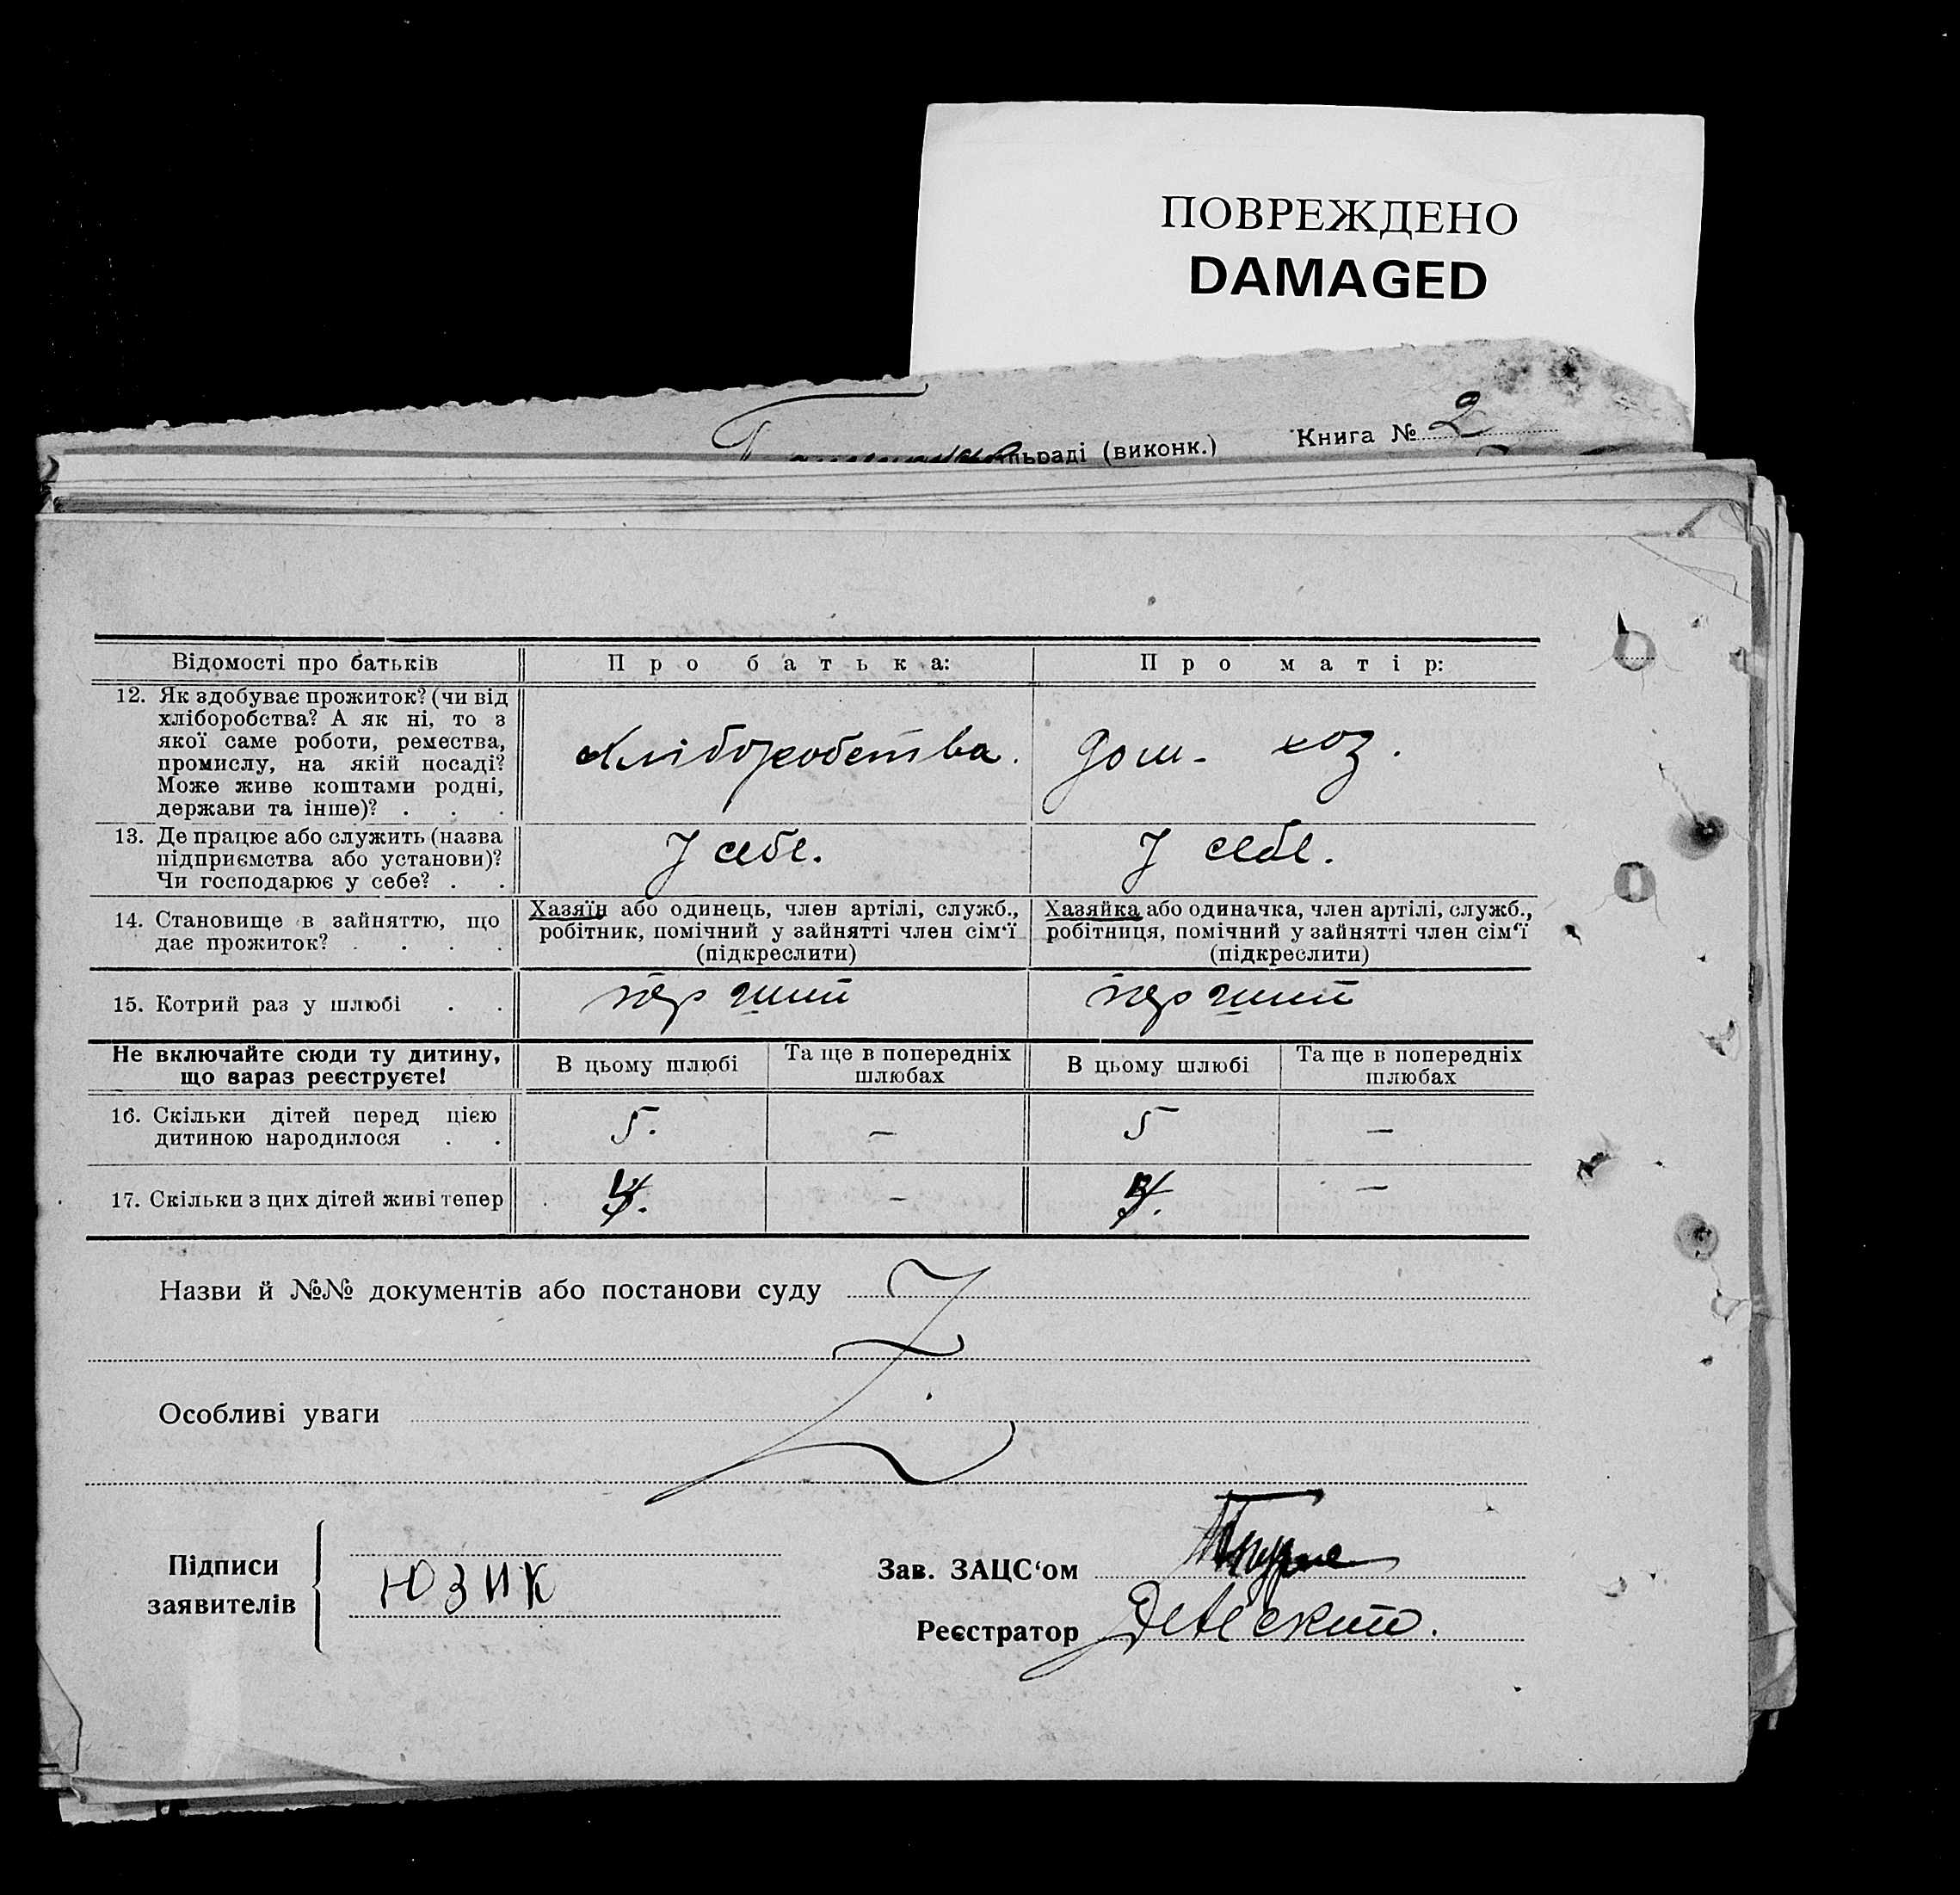 ПОВРЕЖДЕНО
DAMAGED
льраді (виконк.) Книга № 2
Відомості про батьків Про батька: Про матір:
12. Як здобуває прожиток? (чи від
хліборобства? А як ні, то з
якої саме роботи, ремества,
промислу, на якій посаді?
Може живе коштами родні,
держави та інше)? . . .
Хліборобства. Дом. хоз.
13. Де працює або служить (назва
підприємства або установи)?
Чи господарює у себе? . .
У себе. У себе.
14. Становище в зайняттю, що
дає прожиток? . . . .
Хазяїн або одинець, член артілі, служб.,
робітник, помічний у зайнятті член сім‘ї
(підкреслити)
Хазяйка або одиначка, член артілі, служб.,
робітниця, помічний у зайнятті член сім‘ї
(підкреслити)
15. Котрий раз у шлюбі . . перший перший
Не включайте сюди ту дитину,
що вараз реєструєте!
В цьому шлюбі
Та ще в попередніх
шлюбах
В цьому шлюбі
Та ще в попередніх
шлюбах
16. Скільки дітей перед цією
дитиною народилося . .
5. — 5 —
17. Скільки з цих дітей живі тепер — —
Назви й №№ документів або постанови суду
Особливі уваги
Підписи
заявителів
ЮЗИК
Зав. ЗАЦС‘ом
Реєстратор